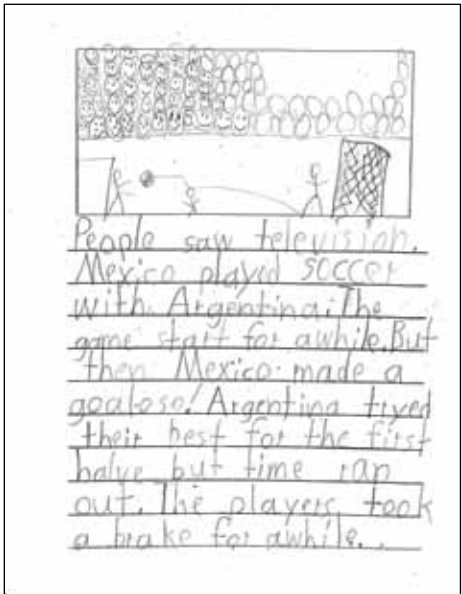 People saw television.
Mexico played soccer
with Argentina. The
game start for awhile. But
then Mexico made a
goaloso! Argentina tryed
their best for the first
halve but time ran
out. The players took
a brake for awhile..